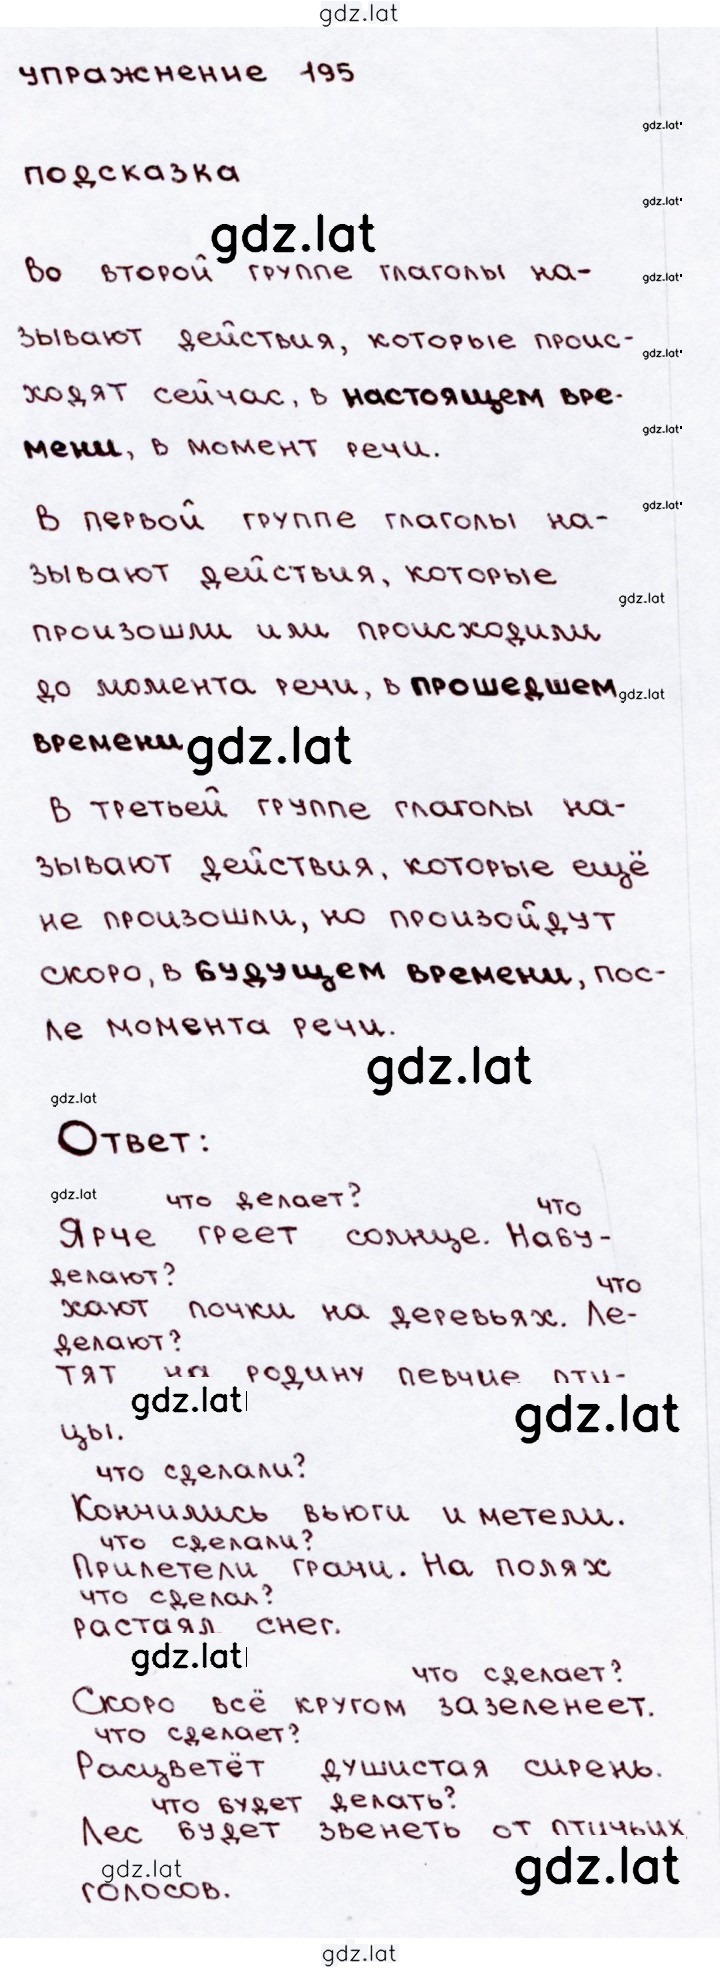 gdz.lat
упражнение 195
gdz.lat
подсказка
gdz.lat
gdz.lat
Во второй группе глаголы на-
gdz.lat
зывают действия, которые проис-
gdz.lat
ходят сейчас, в настоящем вре-
gdz.lat
мени, в момент речи.
gdz.lat
В первой группе глаголы на-
зывают действия, которые
gdz.lat
произошли или происходили
до момента речи, в прошедшем
gdz.lat
времени
gdz.lat
В третьей группе глаголы на-
зывают действия, которые ещё
не произошли, но произойдут
скоро, в будущем времени, пос-
ле момента речи.
gdz.lat
gdz.lat
Ответ:
gdz.lat
что делает? что
Ярче греет солнце. Набу-
делают? что
хают почки на деревьях. Ле-
делают?
тят на родину певчие пти-
gdz.lat
gdz.lat
цы.
что сделали?
Кончились вьюги и метели.
что сделали?
Прилетели грачи. На полях
что сделал?
растаял снег.
gdz.lat
что сделает?
Скоро всё кругом зазеленеет.
что сделает?
Расцветёт душистая сирень.
что будет делать?
Лес будет звенеть от птичьих
gdz.lat
gdz.lat
голосов.
gdz.lat